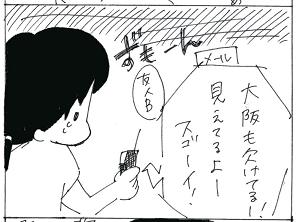 ずもーん
メール
大阪も欠けてる!!
見えてるよー
スゴーイ!
友人B